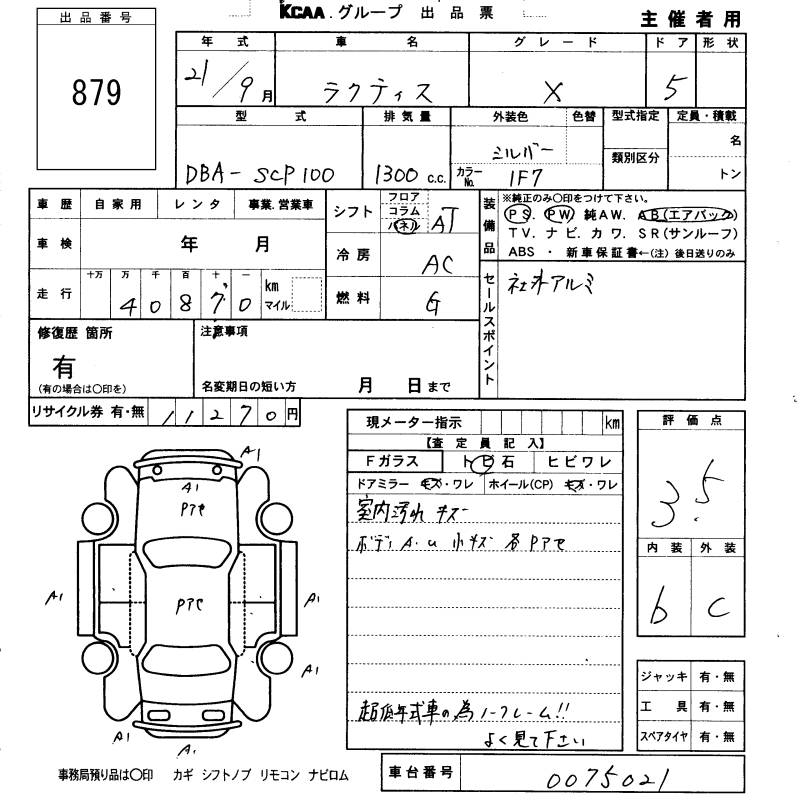 KCAA.グループ 出品票
主催者用
出品番号
879
年式 車名 グレード ドア 形状
21/9月 ラクティス X 5
型式 排気量 外装色 色替 型式指定 定員・積載
DBA-SCP100 1300 c.c. シルバー 類別区分 名
カラーNo. 1F7 トン
車歴 自家用 レンタ 事業.営業車
車検 年 月
走行 十万 万 千 百 十 一 km マイル
40870
シフト フロア コラム パネル AT
冷房 AC
燃料 G
装備品
※純正のみ○印をつけて下さい。
PS. PW 純AW. AB(エアバック)
TV. ナビ. カワ. SR(サンルーフ)
ABS ・ 新車保証書←(注) 後日送りのみ
セールスポイント
社外アルミ
修復歴 箇所
有
(有の場合は○印を)
注意事項
名変期日の短い方 月 日まで
リサイクル券 有・無 11270円
現メーター指示 km
【査定員記入】
Fガラス トビ石 ヒビワレ
ドアミラー キズ・ワレ ホイール(CP) キズ・ワレ
室内汚れ キズ
ボディA.U 小キズ 各Pアセ
超低年式車の為ノークレーム!!
よく見て下さい
評価点
3.5
内装 外装
b C
ジャッキ 有・無
工具 有・無
スペアタイヤ 有・無
A1
A1
Pアセ
Pアセ
A1
A1
A1
A1
A1
事務局預り品は○印 カギ シフトノブ リモコン ナビロム
車台番号 0075021